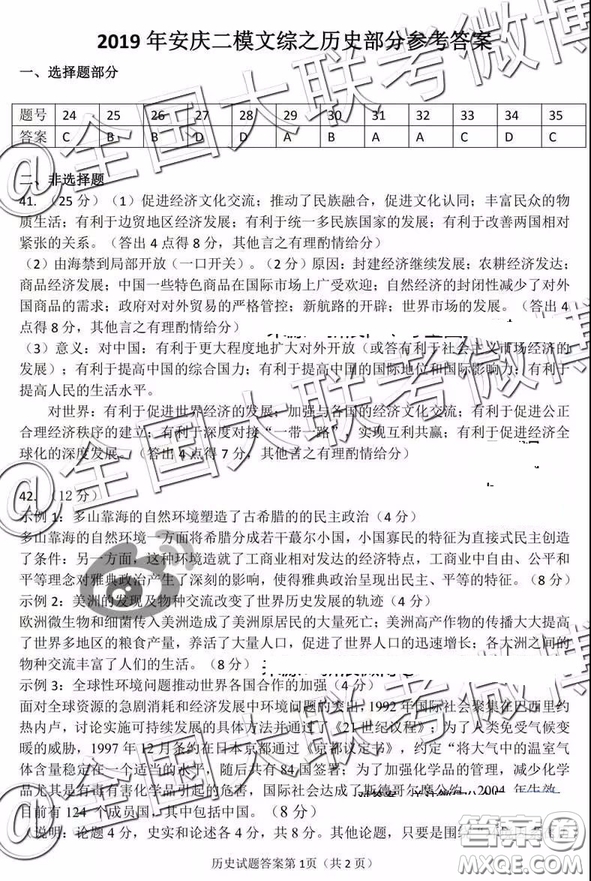 2019 年安庆二模文综之历史部分参考答案
一、选择题部分
题号 24 25 26 27 28 29 30 31 32 33 34 35
答案 C B B D D A B A A C D C
二、非选择题
41. （25 分）（1）促进经济文化交流；推动了民族融合，促进文化认同；丰富民众的物
质生活；有利于边贸地区经济发展；有利于统一多民族国家的发展；有利于改善两国相对
紧张的关系。（答出 4 点得 8 分，其他言之有理酌情给分）
（2）由海禁到局部开放（一口开关）。（2 分）原因：封建经济继续发展；农耕经济发达；
商品经济发展；中国一些特色商品在国际市场上广受欢迎；自然经济的封闭性减少了对外
国商品的需求；政府对对外贸易的严格管控；新航路的开辟；世界市场的发展。（答出 4
点得 8 分，其他言之有理酌情给分）
（3）意义：对中国：有利于更大程度地扩大对外开放（或答有利于社会主义市场经济的
发展）；有利于提高中国的综合国力；有利于提高中国的国际地位和国际影响力；有利于
提高人民的生活水平。
对世界：有利于促进世界经济的发展；加强与各国的经济文化交流；有利于促进公正
合理经济秩序的建立；有利于对接“一带一路”，实现互利共赢；有利于促进经济全
球化的深度发展。（答出 4 点得 7 分，其他言之有理酌情给分）
42. （12 分）
示例 1：多山靠海的自然环境塑造了古希腊的的民主政治（4 分）
多山靠海的自然环境一方面将希腊分成若干蕞尔小国，小国寡民的特征为直接式民主创造
了条件；另一方面，这种环境造就了工商业相对发达的经济特点，工商业中自由、公平和
平等理念对雅典政治产生了深刻的影响，使得雅典政治呈现出民主、平等的特征。（8 分）
示例 2：美洲的发现及物种交流改变了世界历史发展的轨迹（4 分）
欧洲微生物和细菌传入美洲造成了美洲原居民的大量死亡；美洲高产作物的传播大大提高
了世界多地区的粮食产量，养活了大量人口，促进了世界人口的迅速增长；各大洲之间的
物种交流丰富了人们的生活。（8 分）
示例 3：全球性环境问题推动世界各国合作的加强（4 分）
面对全球资源的急剧消耗和经济发展中环境问题的突出，1992 年国际社会聚集在巴西里约
热内卢，讨论实施可持续发展的具体方法并通过了《21 世纪议程》；为了人类免受气候变
暖的威胁，1997 年 12 月条约在日本京都通过《京都议定书》，约定“将大气中的温室气
体含量稳定在一个适当的水平，随后共有 84 国签署；为了加强化学品的管理，减少化学
品尤其是有毒有害化学品引起的危害，国际社会达成了斯德哥尔摩公约，2004 年生效，
目前有 124 个成员国，其中包括中国。（8 分）
（说明：论题 4 分，史实和论述各 4 分，共 8 分。其他论题，只要是围
历史试题答案第 1页（共 2 页）
@全国大联考微博
@全国大联考微博
答案圈
MXQE.COM